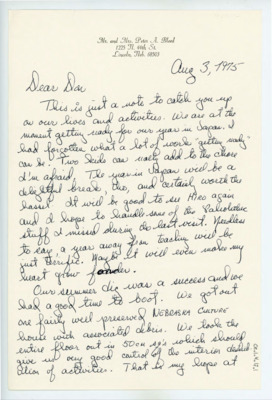 Mr. and Mrs. Peter A. Bleed
1325 N. 41st St.
Lincoln, Neb. 68503
Aug 3, 1975
Dear Don
This is just a note to catch you up
on our lives and activities. We are at the
moment getting ready for our year in Japan. I
had forgotten what a lot of work "getting ready"
can be. Two kids can really add to the chore
I'm afraid. The year in Japan will be a
delightful break, tho, and certainly worth the
hassle. It will be good to see Hiro again
and I hope to handle some of the Paleolithic
stuff I missed during the last visit. Needless
to say a year away from teaching will be
just terrific. Maybe it will even make my
heart grow fonder.
Our summer dig was a success and we
had a good time to boot. We got out
one fairly well preserved NEBRASKA CULTURE
house with associated debris. We took the
entire floor out in 50cm sq's which should
give us very good control of the interior distrib-
ution of activities. That is my hope at